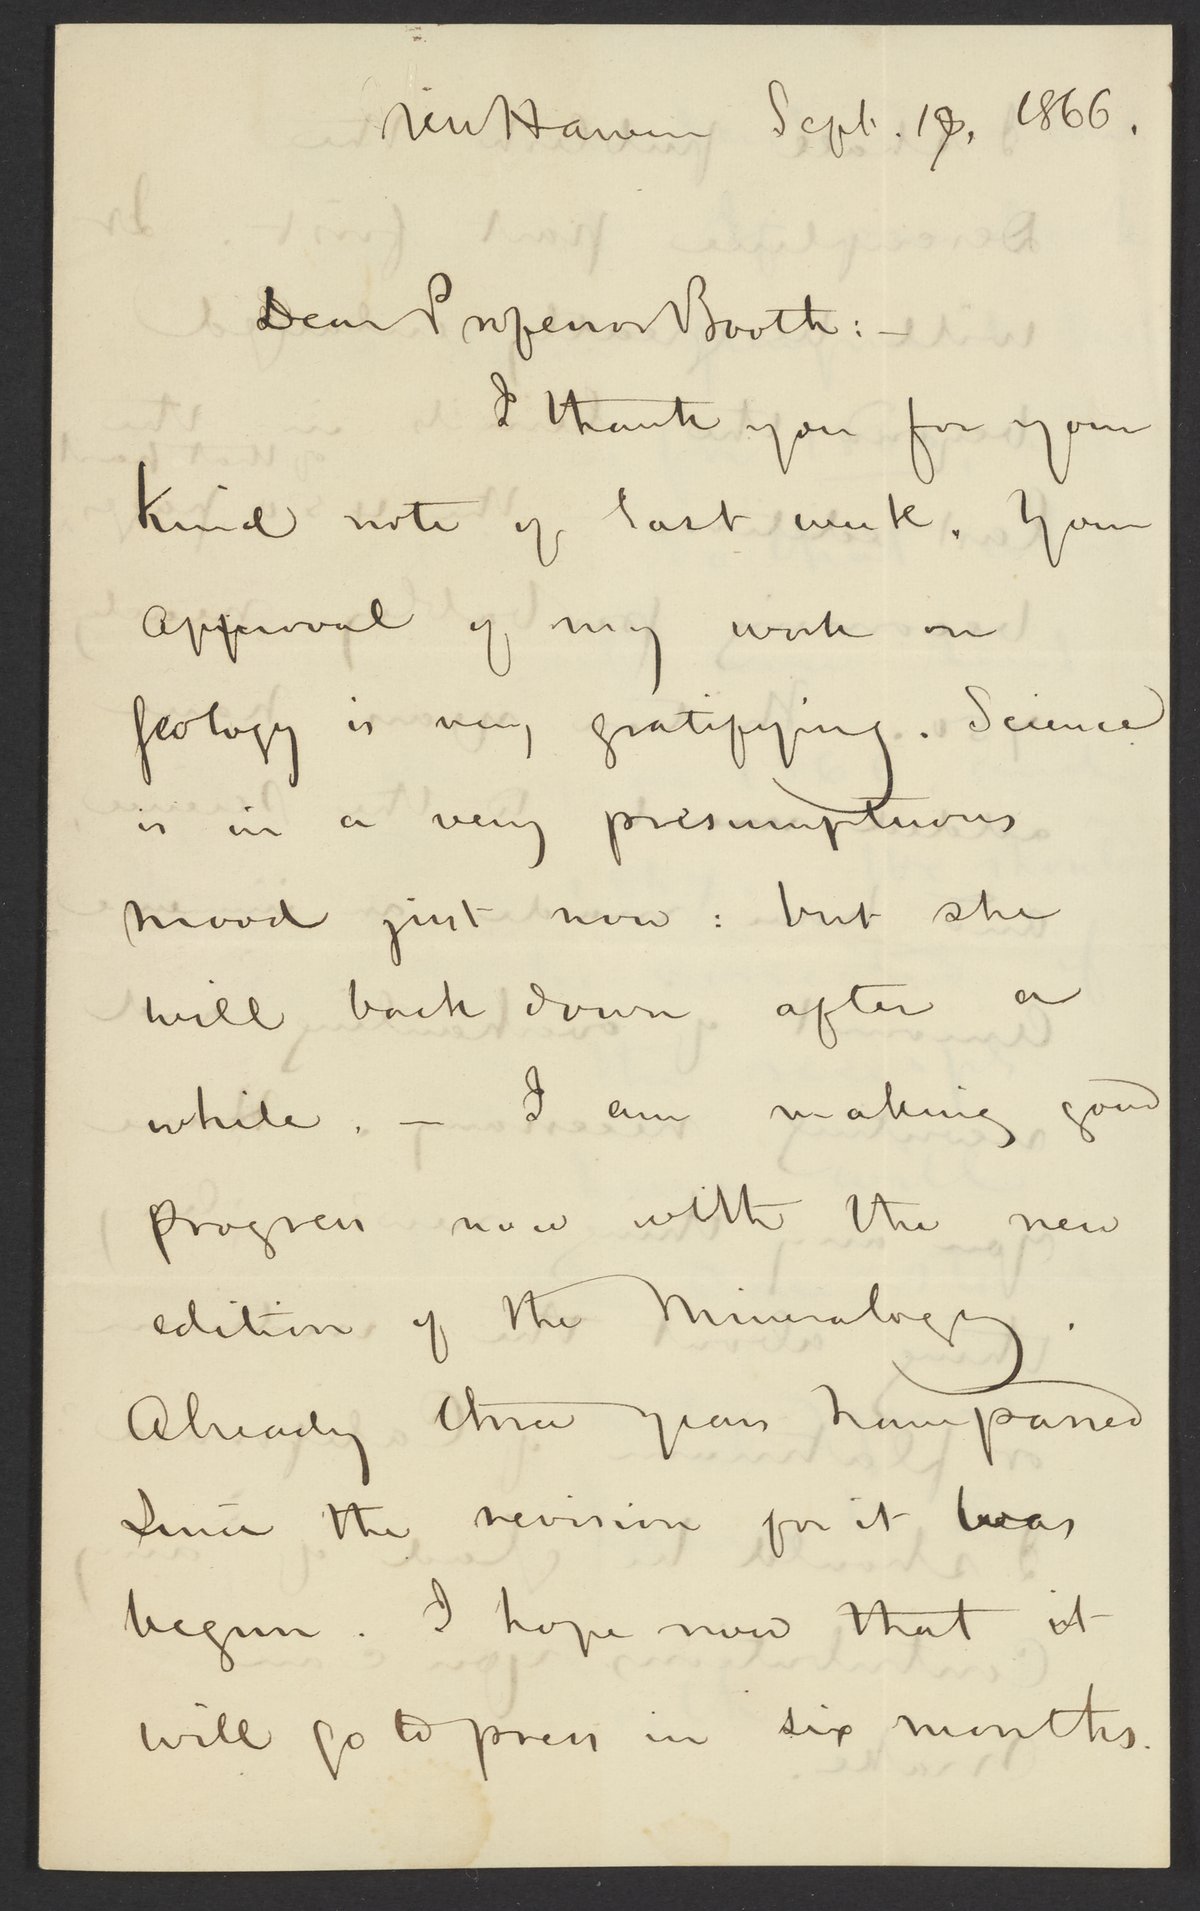 New Haven Sept. 19, 1866.
Dear Professor Booth: —
I thank you for your
kind note of last week. Your
approval of my work on
Geology is very gratifying. Science
is in a very presumptuous
mood just now: but she
will back down after a
while. — I am making good
progress now with the new
edition of the Mineralogy.
Already three years have passed
since the revision for it was
begun. I hope now that it
will go to press in six months.